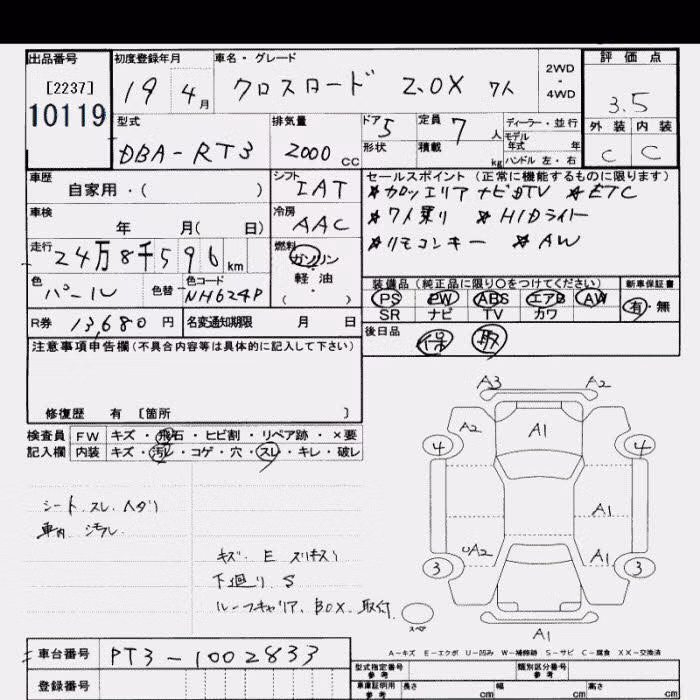 出品番号 初度登録年月 車名・グレード 2WD・4WD 評価点
[2237]
10119
19 4月 クロスロード 2.0X 7人 3.5
型式 排気量 ドア 5 定員 7人 ディーラー・並行 外装 内装
モデル年式 年
形状 積載 kg ハンドル 左・右
DBA-RT3 2000cc C C
車歴 自家用・( ) シフト IAT セールスポイント(正常に機能するものに限ります)
☆カロッツェリア ナビTV ☆ETC
車検 年 月( 日) 冷房 AAC ☆7人乗り ☆HIDライト
走行 24万8千596km 燃料 ガソリン・軽油・( ) ☆リモコンキー ☆AW
色 パール 色替 色コード NH624P 装備品(純正品に限り○をつけてください) 新車保証書
PS PW ABS エアB AW 有・無
SR ナビ TV カワ
R券 13,680円 名変通知期限 月 日 後日品 保 取
注意事項申告欄(不具合内容等は具体的に記入して下さい)
修復歴 有 〔箇所 〕
検査員 FW キズ・飛石・ヒビ割・リペア跡・×要
記入欄 内装 キズ・汚レ・コゲ・穴・スレ・キレ・破レ
シート スレ ヘタリ
車内 汚レ
キズ E スリキズ
下廻り S
ルーフキャリア、BOX 取付
A3 A2
A2 A1
4 4
A1
UA2 A1
3 3
スペア
A1
A-キズ E-エクボ U-凹み W-補修跡 S-サビ C-腐食 XX-交換済
車台番号 RT3-1002833
登録番号
型式指定番号 参考 類別区分番号 参考
車庫証明用 参考 長さ cm 幅 cm 高さ cm